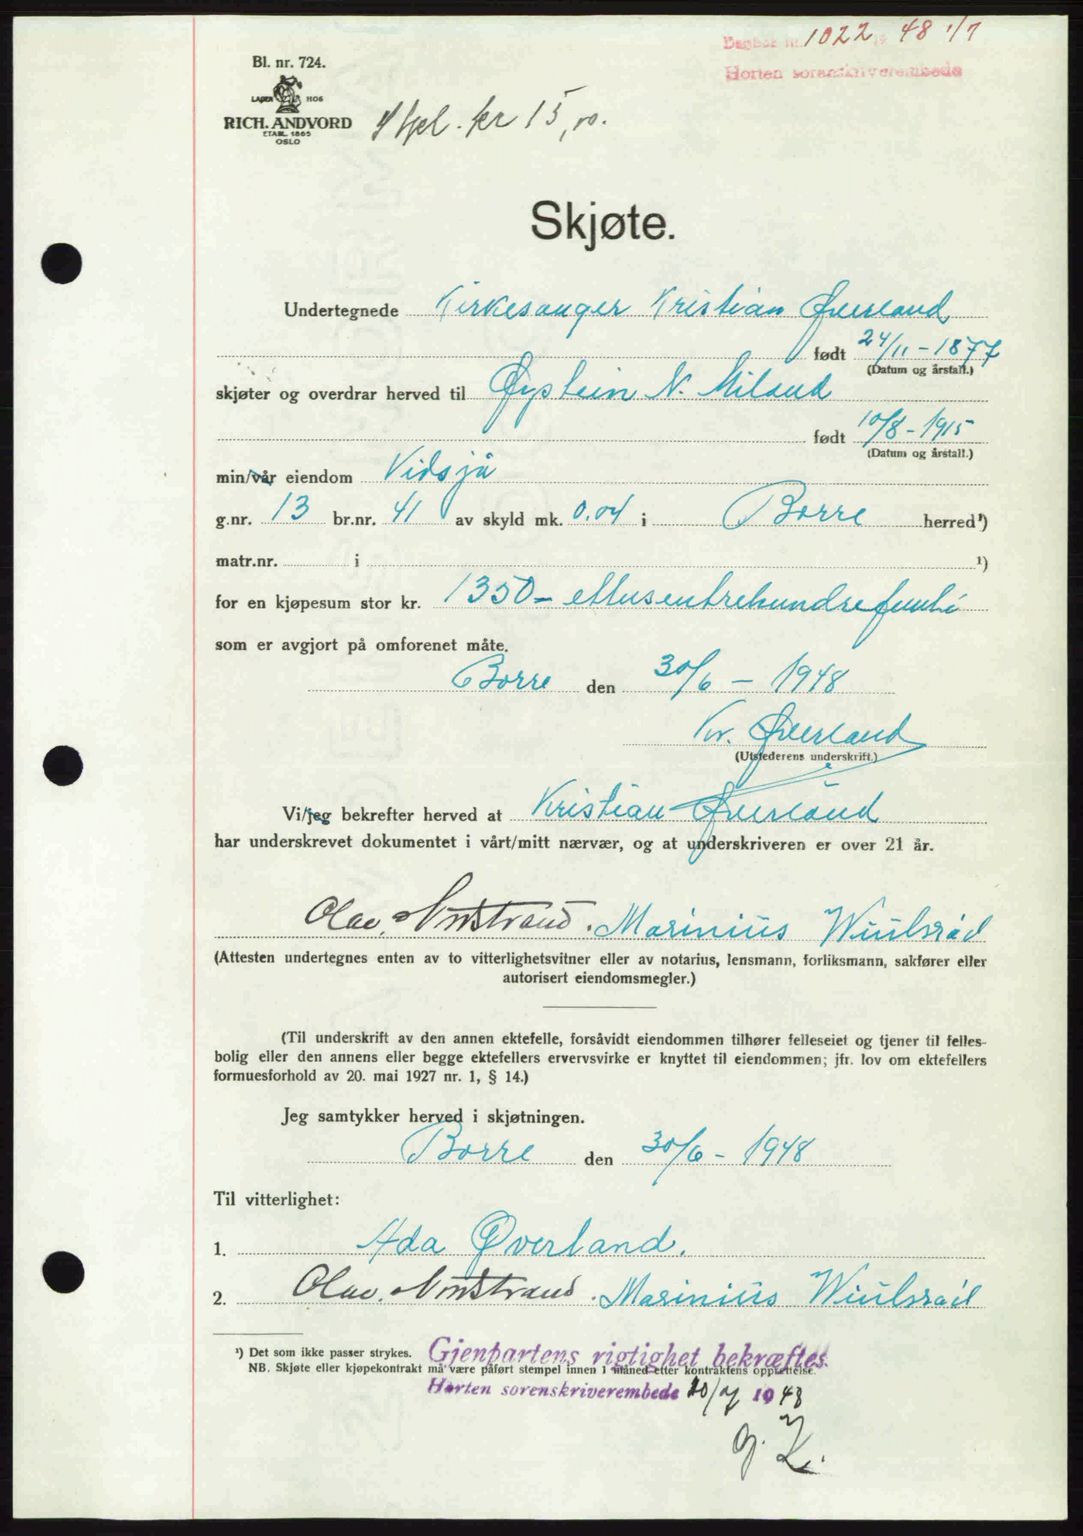 Dagbok nr. 1022 19 48 1/7
Horten sorenskriverembede
Bl. nr. 724.
LAGER HOS
RICH. ANDVORD
ETABL. 1865
OSLO
kr 15,00.
Skjøte.
Undertegnede Kirkesanger Kristian Øverland
født 24/11-1877
(Datum og årstall.)
skjøter og overdrar herved til Øystein N. Miland
født 10/8-1915
(Datum og årstall.)
min/vår eiendom Vidsjå
g.nr. 13 br.nr. 41 av skyld mk. 0.04 i Borre herred¹)
matr.nr. i ¹)
for en kjøpesum stor kr. 1350- ettusentrehundrefemti
som er avgjort på omforenet måte.
Borre den 30/6 - 1948
Kr. Øverland
(Utstederens underskrift.)
Vi/jeg bekrefter herved at Kristian Øverland
har underskrevet dokumentet i vårt/mitt nærvær, og at underskriveren er over 21 år.
Olav Nordstrand. Marinius Wiulsrød
(Attesten undertegnes enten av to vitterlighetsvitner eller av notarius, lensmann, forliksmann, sakfører eller
autorisert eiendomsmegler.)
(Til underskrift av den annen ektefelle, forsåvidt eiendommen tilhører felleseiet og tjener til felles-
bolig eller den annens eller begge ektefellers ervervsvirke er knyttet til eiendommen; jfr. lov om ektefellers
formuesforhold av 20. mai 1927 nr. 1, § 14.)
Jeg samtykker herved i skjøtningen.
Borre den 30/6- 1948
Til vitterlighet:
1. Ada Øverland.
2. Olav Nordstrand. Marinius Wiulsrød
¹) Det som ikke passer strykes.
Gjenpartens rigtighet bekræftes.
NB. Skjøte eller kjøpekontrakt må være påført stempel innen 1 måned etter kontraktens opprettelse.
Horten sorenskriverembede 10/7 1948